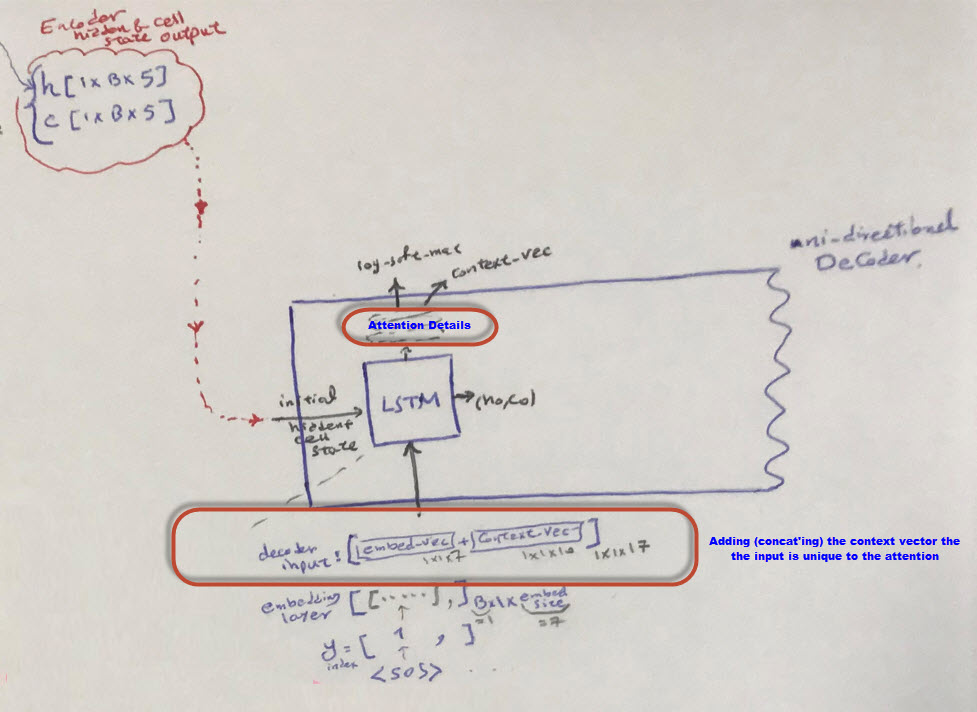 Encoder
hidden & cell
state output
h [1 x B x 5]
c [1 x B x 5]
uni-directional
Decoder.
log_soft_max
context-vec
Attention Details
LSTM
(h0,c0)
initial
hidden
cell
state
decoder
input: [embed-vec + context-vec]
1x1x7
1x1x10
1x1x17
Adding (concat'ing) the context vector the
the input is unique to the attention
embedding
layer [[.....], ] Bx1x embed
size
=1
=7
y = [ 1 , ]
index
<SOS> . . .